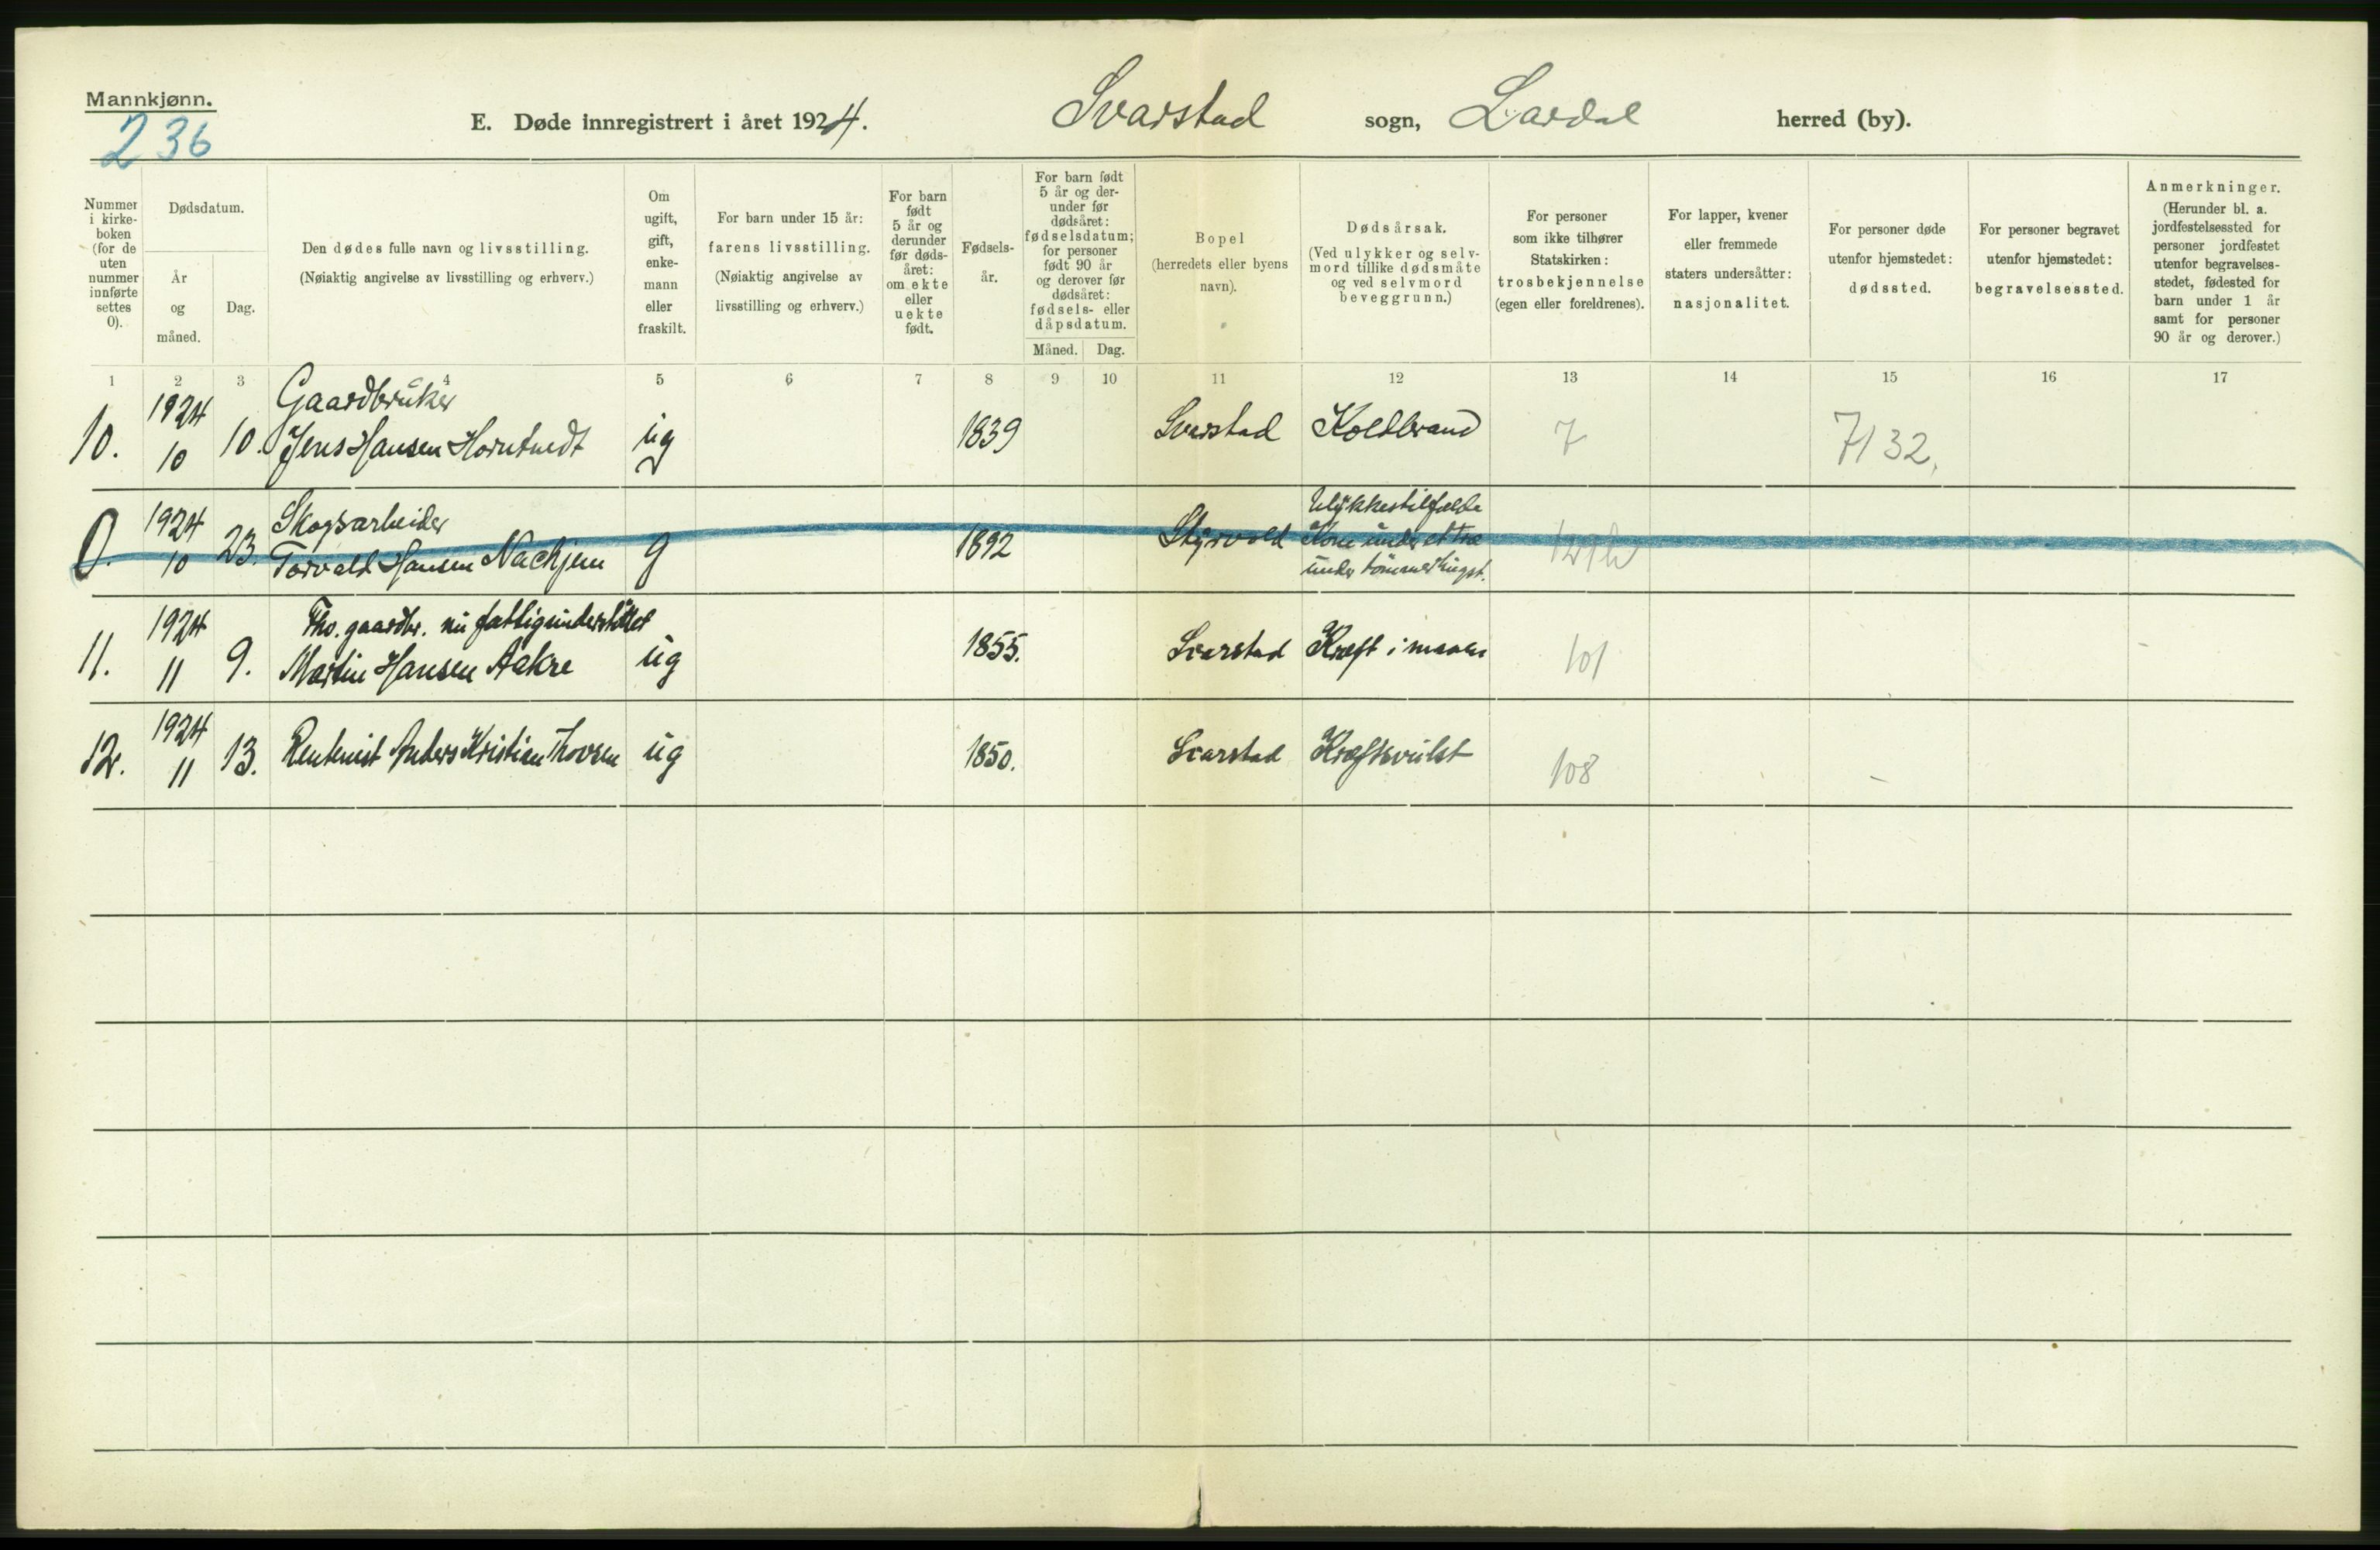 Mannkjønn.
236
E. Døde innregistrert i året 1924.
Svarstad sogn, Lardal herred (by).
Nummer i kirke-boken (for de uten nummer innførte settes 0).
Dødsdatum.
År og måned.
Dag.
Den dødes fulle navn og livsstilling.
(Nøiaktig angivelse av livsstilling og erhverv.)
Om ugift, gift, enke-mann eller fraskilt.
For barn under 15 år:
farens livsstilling.
(Nøiaktig angivelse av livsstilling og erhverv.)
For barn født 5 år og derunder før døds-året: om ekte eller uekte født.
Fødsels-år.
For barn født 5 år og der-under før dødsåret: fødselsdatum; for personer født 90 år og derover før dødsåret: fødsels- eller dåpsdatum.
Måned. Dag.
Bopel
(herredets eller byens navn).
Dødsårsak.
(Ved ulykker og selv-mord tillike dødsmåte og ved selvmord beveggrunn.)
For personer som ikke tilhører Statskirken:
trosbekjennelse
(egen eller foreldrenes).
For lapper, kvener eller fremmede staters undersåtter:
nasjonalitet.
For personer døde utenfor hjemstedet:
dødssted.
For personer begravet utenfor hjemstedet:
begravelsessted.
Anmerkninger.
(Herunder bl. a. jordfestelsessted for personer jordfestet utenfor begravelses-stedet, fødested for barn under 1 år samt for personer 90 år og derover.)
1 2 3 4 5 6 7 8 9 10 11 12 13 14 15 16 17
1924 Gaardbruker
10. 10 10. Jens Hansen Horntvedt ug 1839 Svarstad Koldbrand 7 7132.
1924 Skogsarbeider Ulykkestilfælde
0. 10 23. Torvald Hansen g 1892 Styrvold Kom under et træ
under tømmerhugst.
1924 Fho. gaardbr. nu fattigunderstøttet
11. 11 9. Martin Hansen Aakre ug 1855. Svarstad Kræft i maven 101
1924
12. 11 13. Rentenist Anders Kristian Thovsen ug 1850. Svarstad Kræftsvulst 108